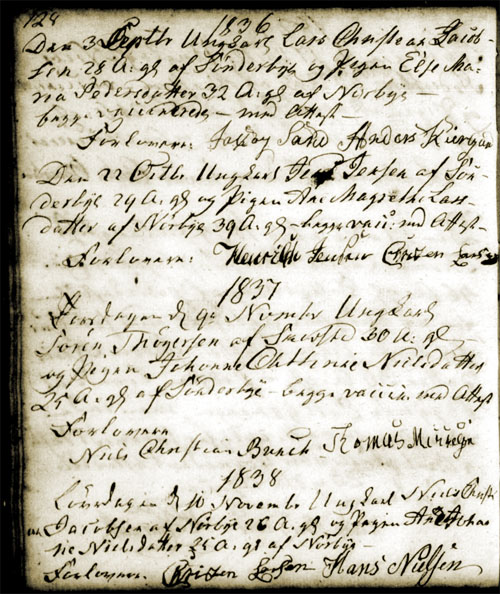 128
1836
Den 3 Septbr Ungkarl Lars Christian Jacob-
sen 28 A: gl af Sønderbÿe og Pigen Else Ma-
ria Pedersdatter 32 A: gl af Nörbÿe -
begge vaccinerede - med Attest -
Forlovere: Sand Anders Kiergaar
Den 22 Octbr Ungkarl Jens Jensen af Søn-
derbÿe 29 A: gl og Pigen Ane Magrethe Lars-
datter af Nörbÿe 39 A: gl - begge vacci: med Attest -
Forlovere: Henrich Cristen Larsen
1837
Löverdagen d 9 Novembr Ungkarl
Sören Thögersen af 30 A: gl
og Pigen Johanne Cathrine Nielsdatter
25 A: gl af Sönderbÿe - begge vaccin: med Attest
Forlovere
Niels Christian Bunch Thomas
1838
Löverdagen d 10 Novembr Ungkarl Niels Christi
an Jacobsen af Nörbÿe 26 A: gl og Pigen Ane Johan
ne Nielsdatter 25 A: gl af Nörbÿe -
Forlovere: Cristen Larsen Hans Nielsen